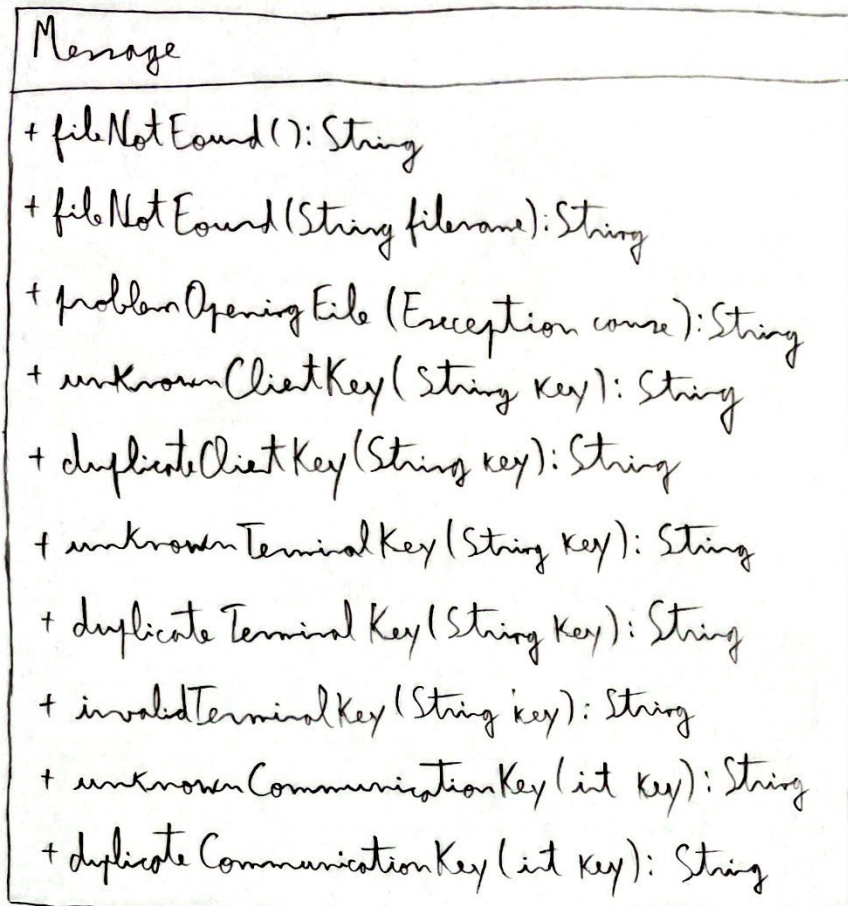 Message
+ fileNotFound(): String
+ fileNotFound(String filename): String
+ problemOpeningFile (Exception cause): String
+ unknownClientKey( String key): String
+ duplicateClientKey(String key): String
+ unknownTerminalKey(String key): String
+ duplicateTerminalKey(String key): String
+ invalidTerminalKey(String key): String
+ unknownCommunicationKey(int key): String
+ duplicateCommunicationKey(int key): String